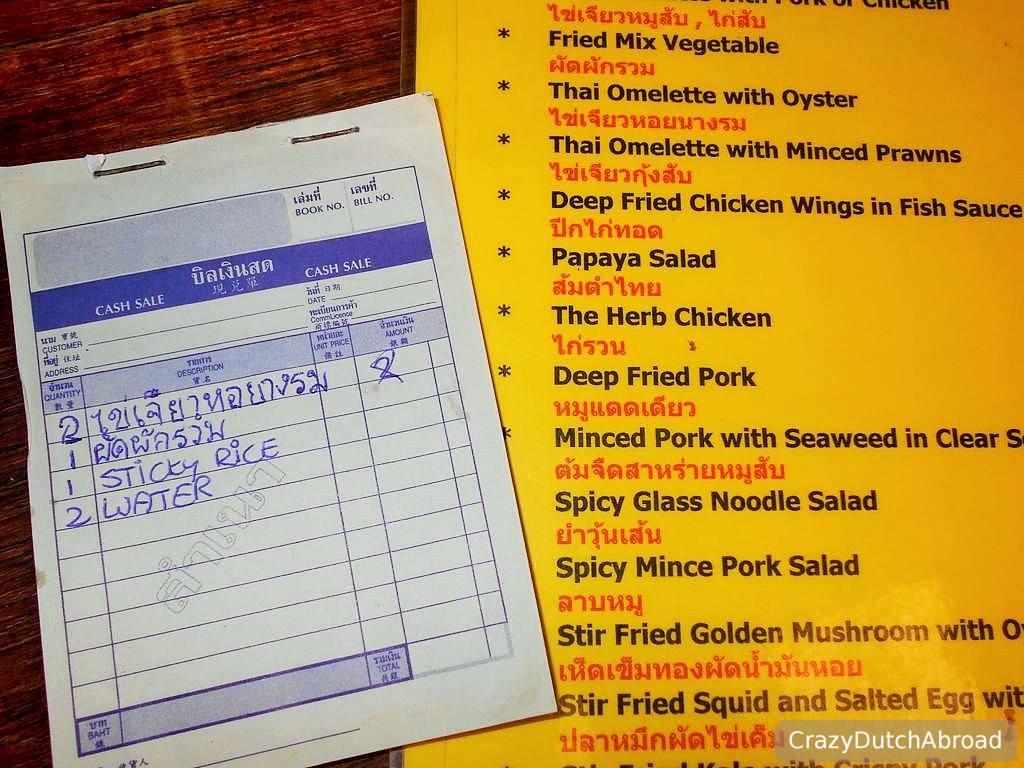 เล่มที่ เลขที่
BOOK NO. BILL NO.
บิลเงินสด
CASH SALE 現兌單 CASH SALE
นาม 寶號
CUSTOMER
ที่อยู่ 住址
ADDRESS
วันที่ 日期
DATE
ทะเบียนการค้า
จำนวน รายการ หน่วยละ จำนวนเงิน
QUANTITY DESCRIPTION UNIT PRICE AMOUNT
數量 貨名 價 銀額
2 ไข่เจียวหอยางรม 2
1 ผัดผักรวม
1 STICKY RICE
2 WATER
สำเนา
รวมเงิน
TOTAL
บาท
BAHT
with Pork or Chicken
ไข่เจียวหมูสับ , ไก่สับ
* Fried Mix Vegetable
ผัดผักรวม
* Thai Omelette with Oyster
ไข่เจียวหอยนางรม
* Thai Omelette with Minced Prawns
ไข่เจียวกุ้งสับ
* Deep Fried Chicken Wings in Fish Sauce
ปีกไก่ทอด
* Papaya Salad
ส้มตำไทย
* The Herb Chicken
ไก่รวน
* Deep Fried Pork
หมูแดดเดียว
* Minced Pork with Seaweed in Clear
ต้มจืดสาหร่ายหมูสับ
Spicy Glass Noodle Salad
ยำวุ้นเส้น
Spicy Mince Pork Salad
ลาบหมู
Stir Fried Golden Mushroom with
เห็ดเข็มทองผัดน้ำมันหอย
Stir Fried Squid and Salted Egg
ปลาหมึกผัดไข่เค็ม
Stir Fried Kale with Crispy Pork
CrazyDutchAbroad